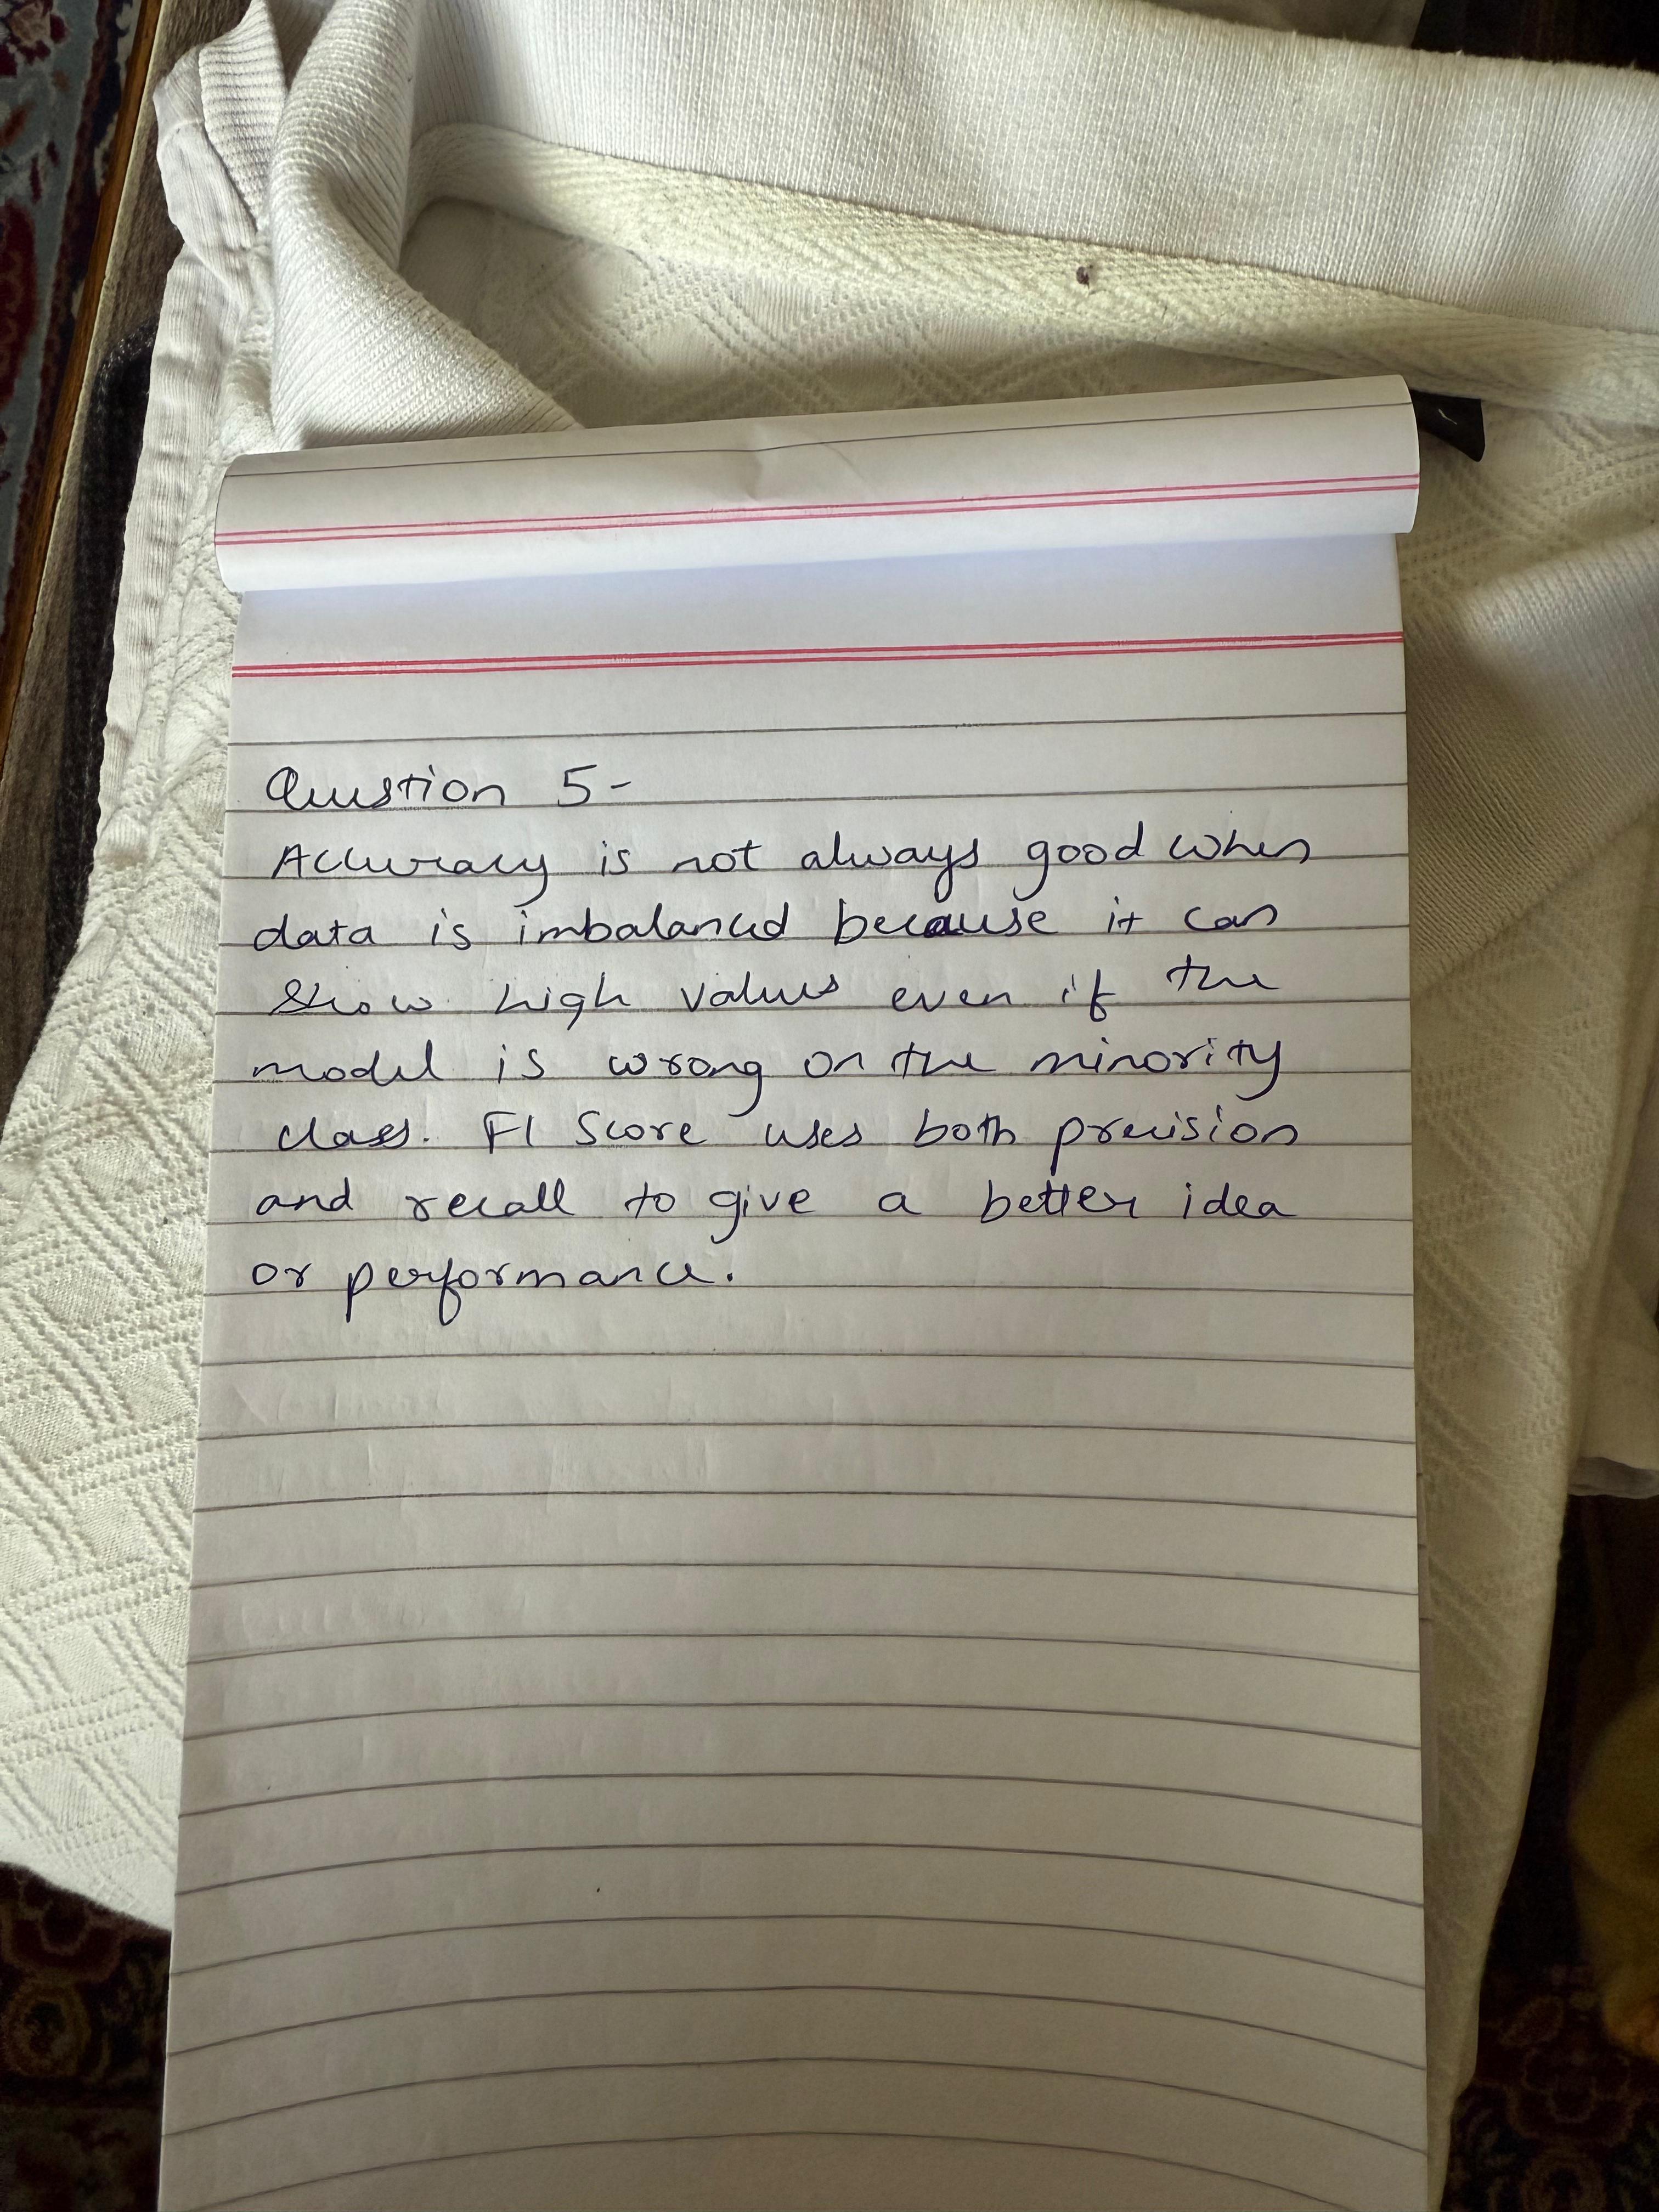 Question 5-
Accuracy is not always good when
data is imbalanced because it can
show high values even if the
model is wrong on the minority
class. F1 Score uses both precision
and recall to give a better idea
or performance.